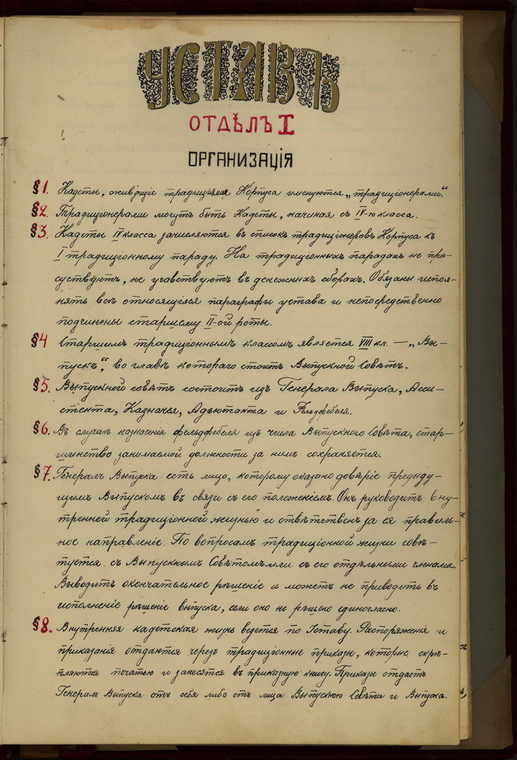 УСТАВЪ
ОТДѢЛЪ I
ОРГАНИЗАЦІЯ
§1. Кадеты, живущіе традиціями Корпуса именуются „традиціонерами".
§2. Традиціонерами могутъ быть Кадеты, начиная съ IV-го класса.
§3. Кадеты IV класса зачисляются въ списокъ традиціонеровъ Корпуса къ
I традиціонному параду. На традиціонныхъ парадахъ не при-
сутствуютъ, не участвуютъ въ денежныхъ сборахъ. Обязаны испол-
нять всѣ относящіеся параграфы устава и непосредственно
подчинены старшему II-ой роты.
§4 Старшимъ традиціоннымъ классомъ является VIII кл. — „Вы-
пускъ", во главѣ котораго стоитъ Выпускной Совѣтъ.
§5. Выпускной совѣтъ состоитъ изъ Генерала Выпуска, Асси-
стента, Казначея, Адъютанта и Фельдфебеля.
§6. Въ случаѣ назначенія фельдфебеля изъ числа Выпускного Совѣта, стар-
шинство занимаемой должности за нимъ сохраняется.
§7. Генералъ Выпуска есть лицо, которому оказано довѣріе предыду-
щимъ Выпускомъ въ связи съ его положеніемъ. Онъ руководитъ вну-
тренней традиціонной жизнью и отвѣтственъ за ея правиль-
ное направленіе. По вопросамъ традиціонной жизни совѣ-
туется съ Выпускнымъ Совѣтомъ или съ его отдѣльными членами.
Выводитъ окончательное рѣшеніе и можетъ не приводить въ
исполненіе рѣшеніе выпуска, если оно не рѣшено единогласно.
§8. Внутренняя кадетская жизнь ведется по Уставу. Распоряженія и
приказанія отдаются черезъ традиціонные приказы, которые скрѣ-
пляются печатью и заносятся въ приказную книгу. Приказы отдаетъ
Генералъ Выпуска отъ себя либо отъ лица Выпускного Совѣта и Выпуска.